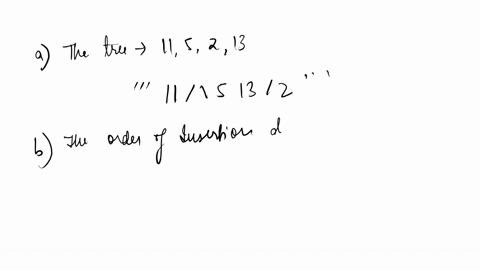 a) The tree → 11, 5, 2, 13
''' 11 / \ 5 13 / 2 ''''
b) The order of Insertions d